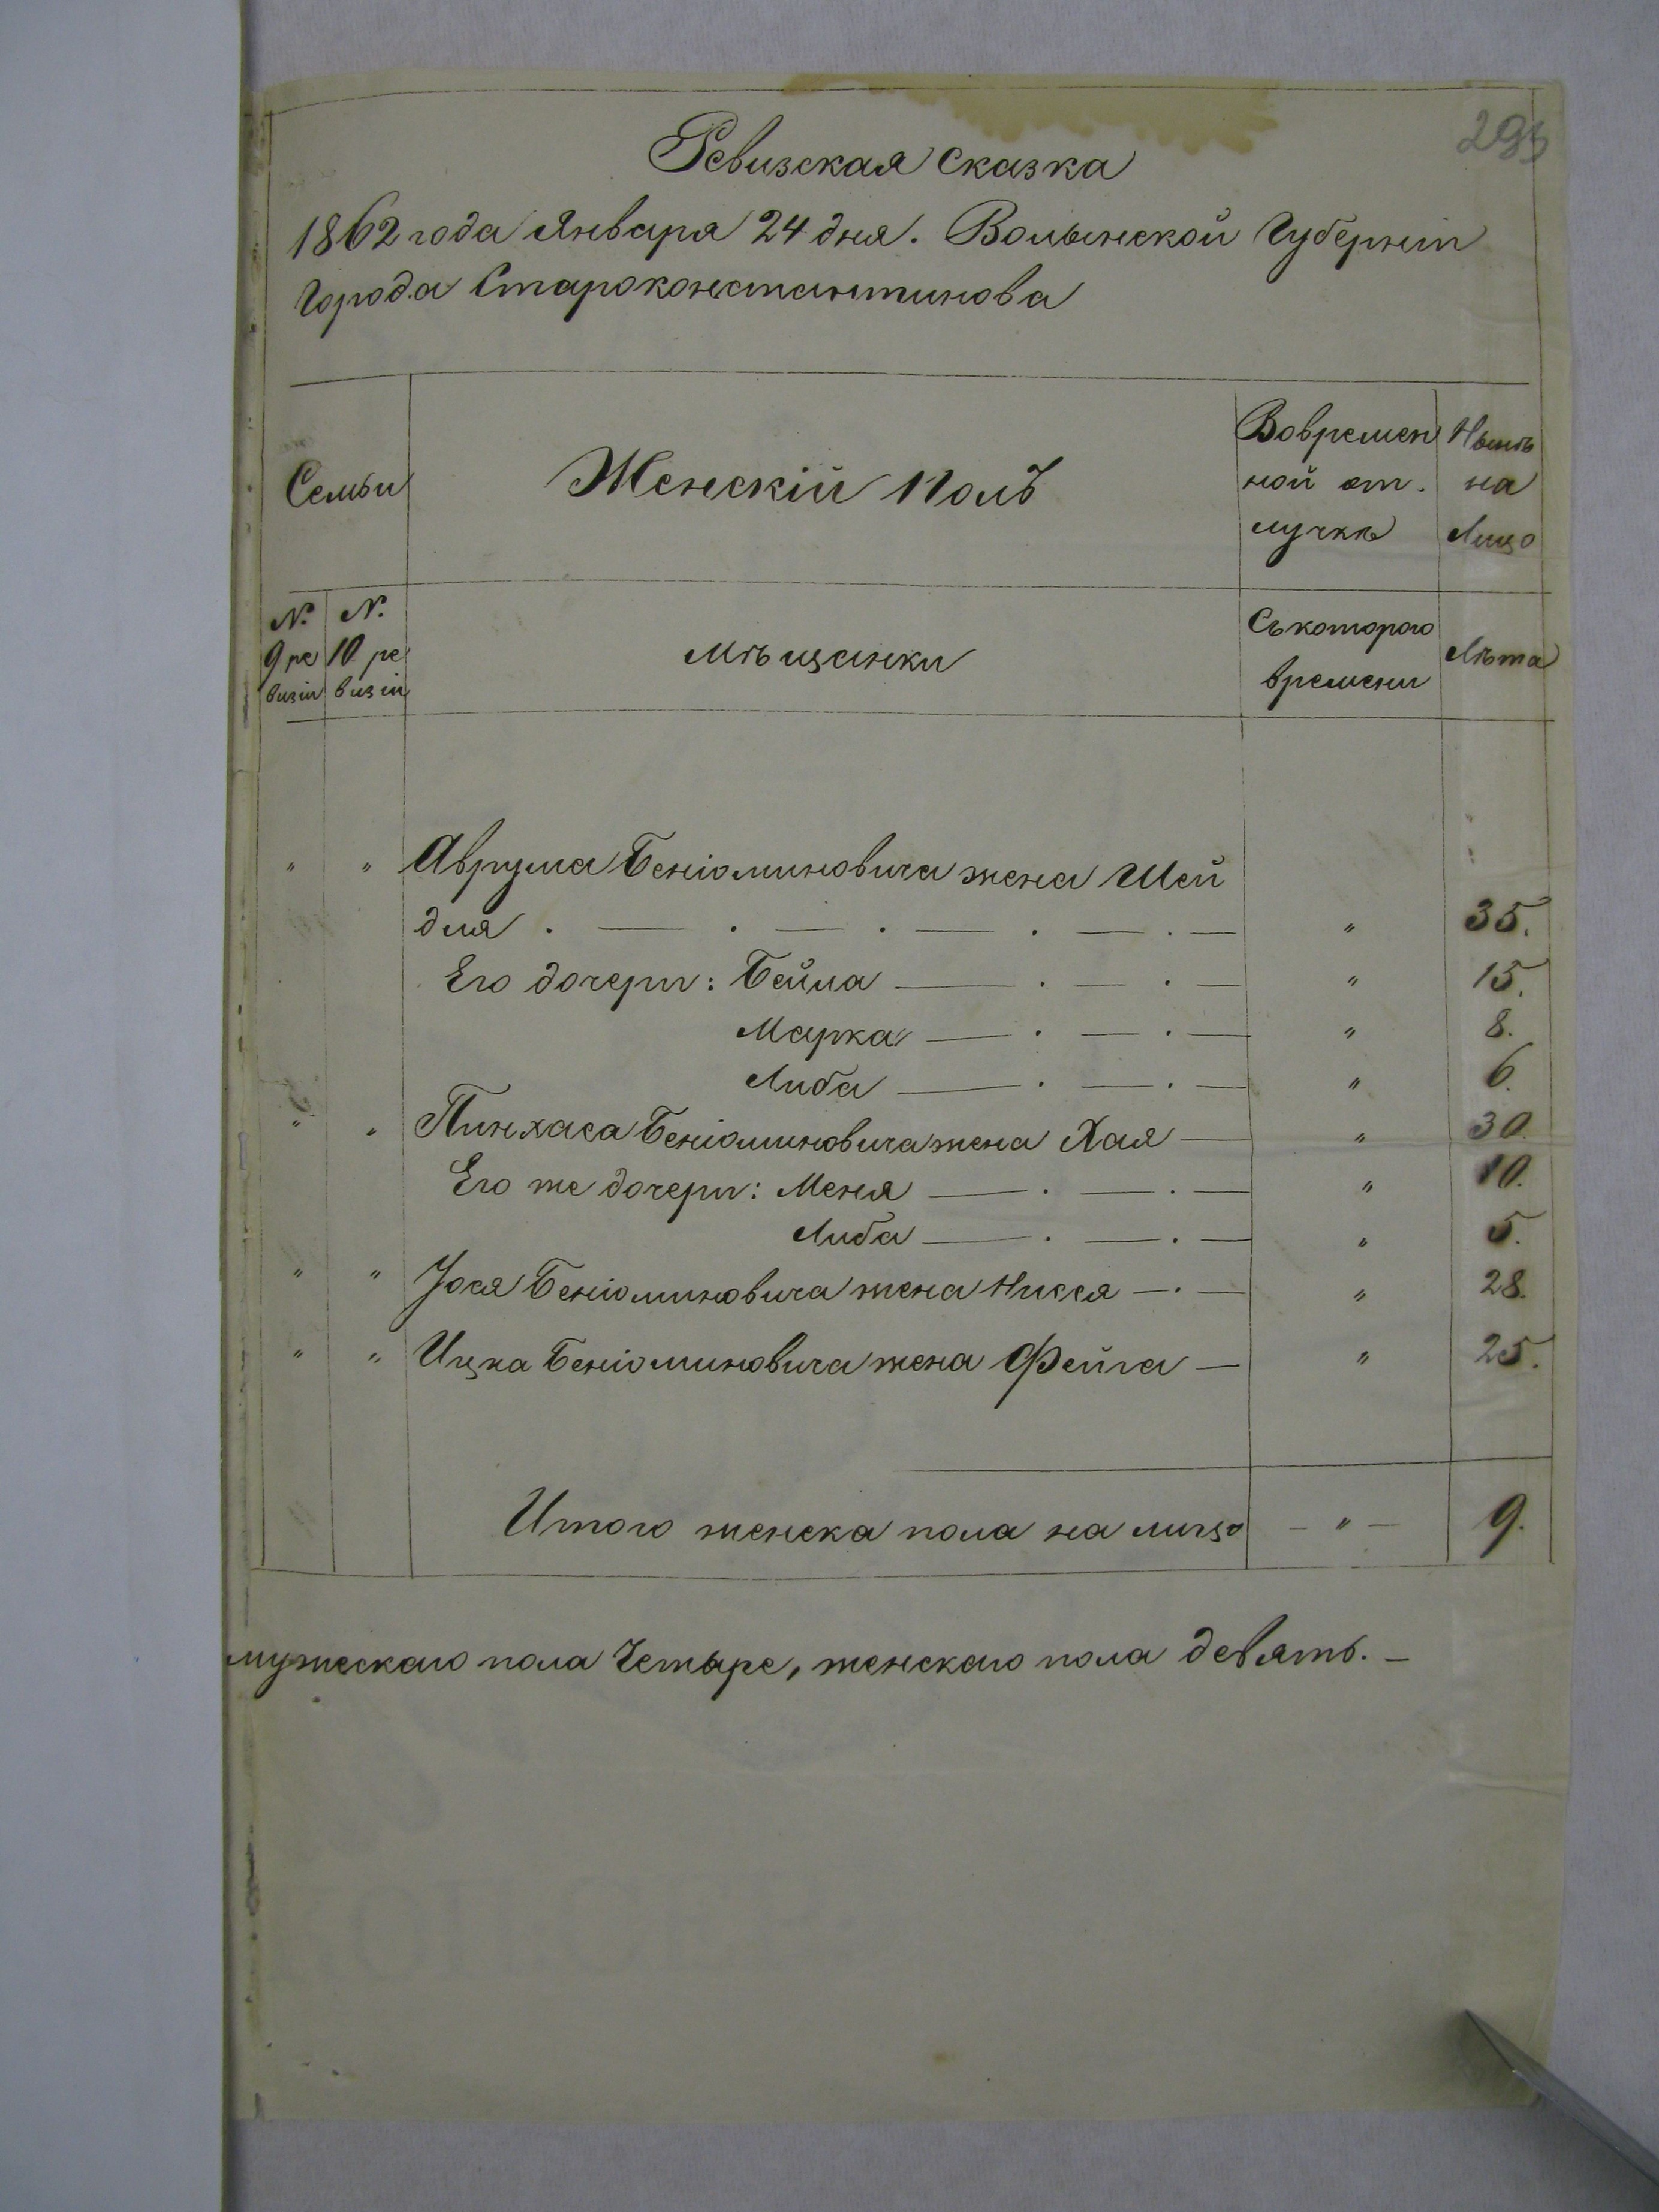 293
Ревизская сказка
1862 года Января 24 дня. Волынской Губерніи
Города Староконстантинова
Семьи
Женскій полъ
Вовремен
ной от.
лучкѣ
Нынѣ
на
Лицо
№.
9 ре
визіи
№.
10 ре
визіи
Мѣщанки
Съкоторого
времени
Лѣта
" " Аврума Беніоминовича жена Шей
для . — . — . — . — . — " 35.
Его дочери: Бейла — . — . — " 15.
Марка — . — . — " 8.
Либа — . — . — " 6.
" " Пинхаса Беніоминовича жена Хая — " 30.
Его же дочери: Меня — . — . — " 10.
Либа — . — . — " 5.
" " Іося Беніоминовича жена Нисся — . — " 28.
" " Ицка Беніоминовича жена Фейга — " 25.
Итого женска пола на лицо — " — 9.
мужескаго пола Четыре, женскаго пола девять. —